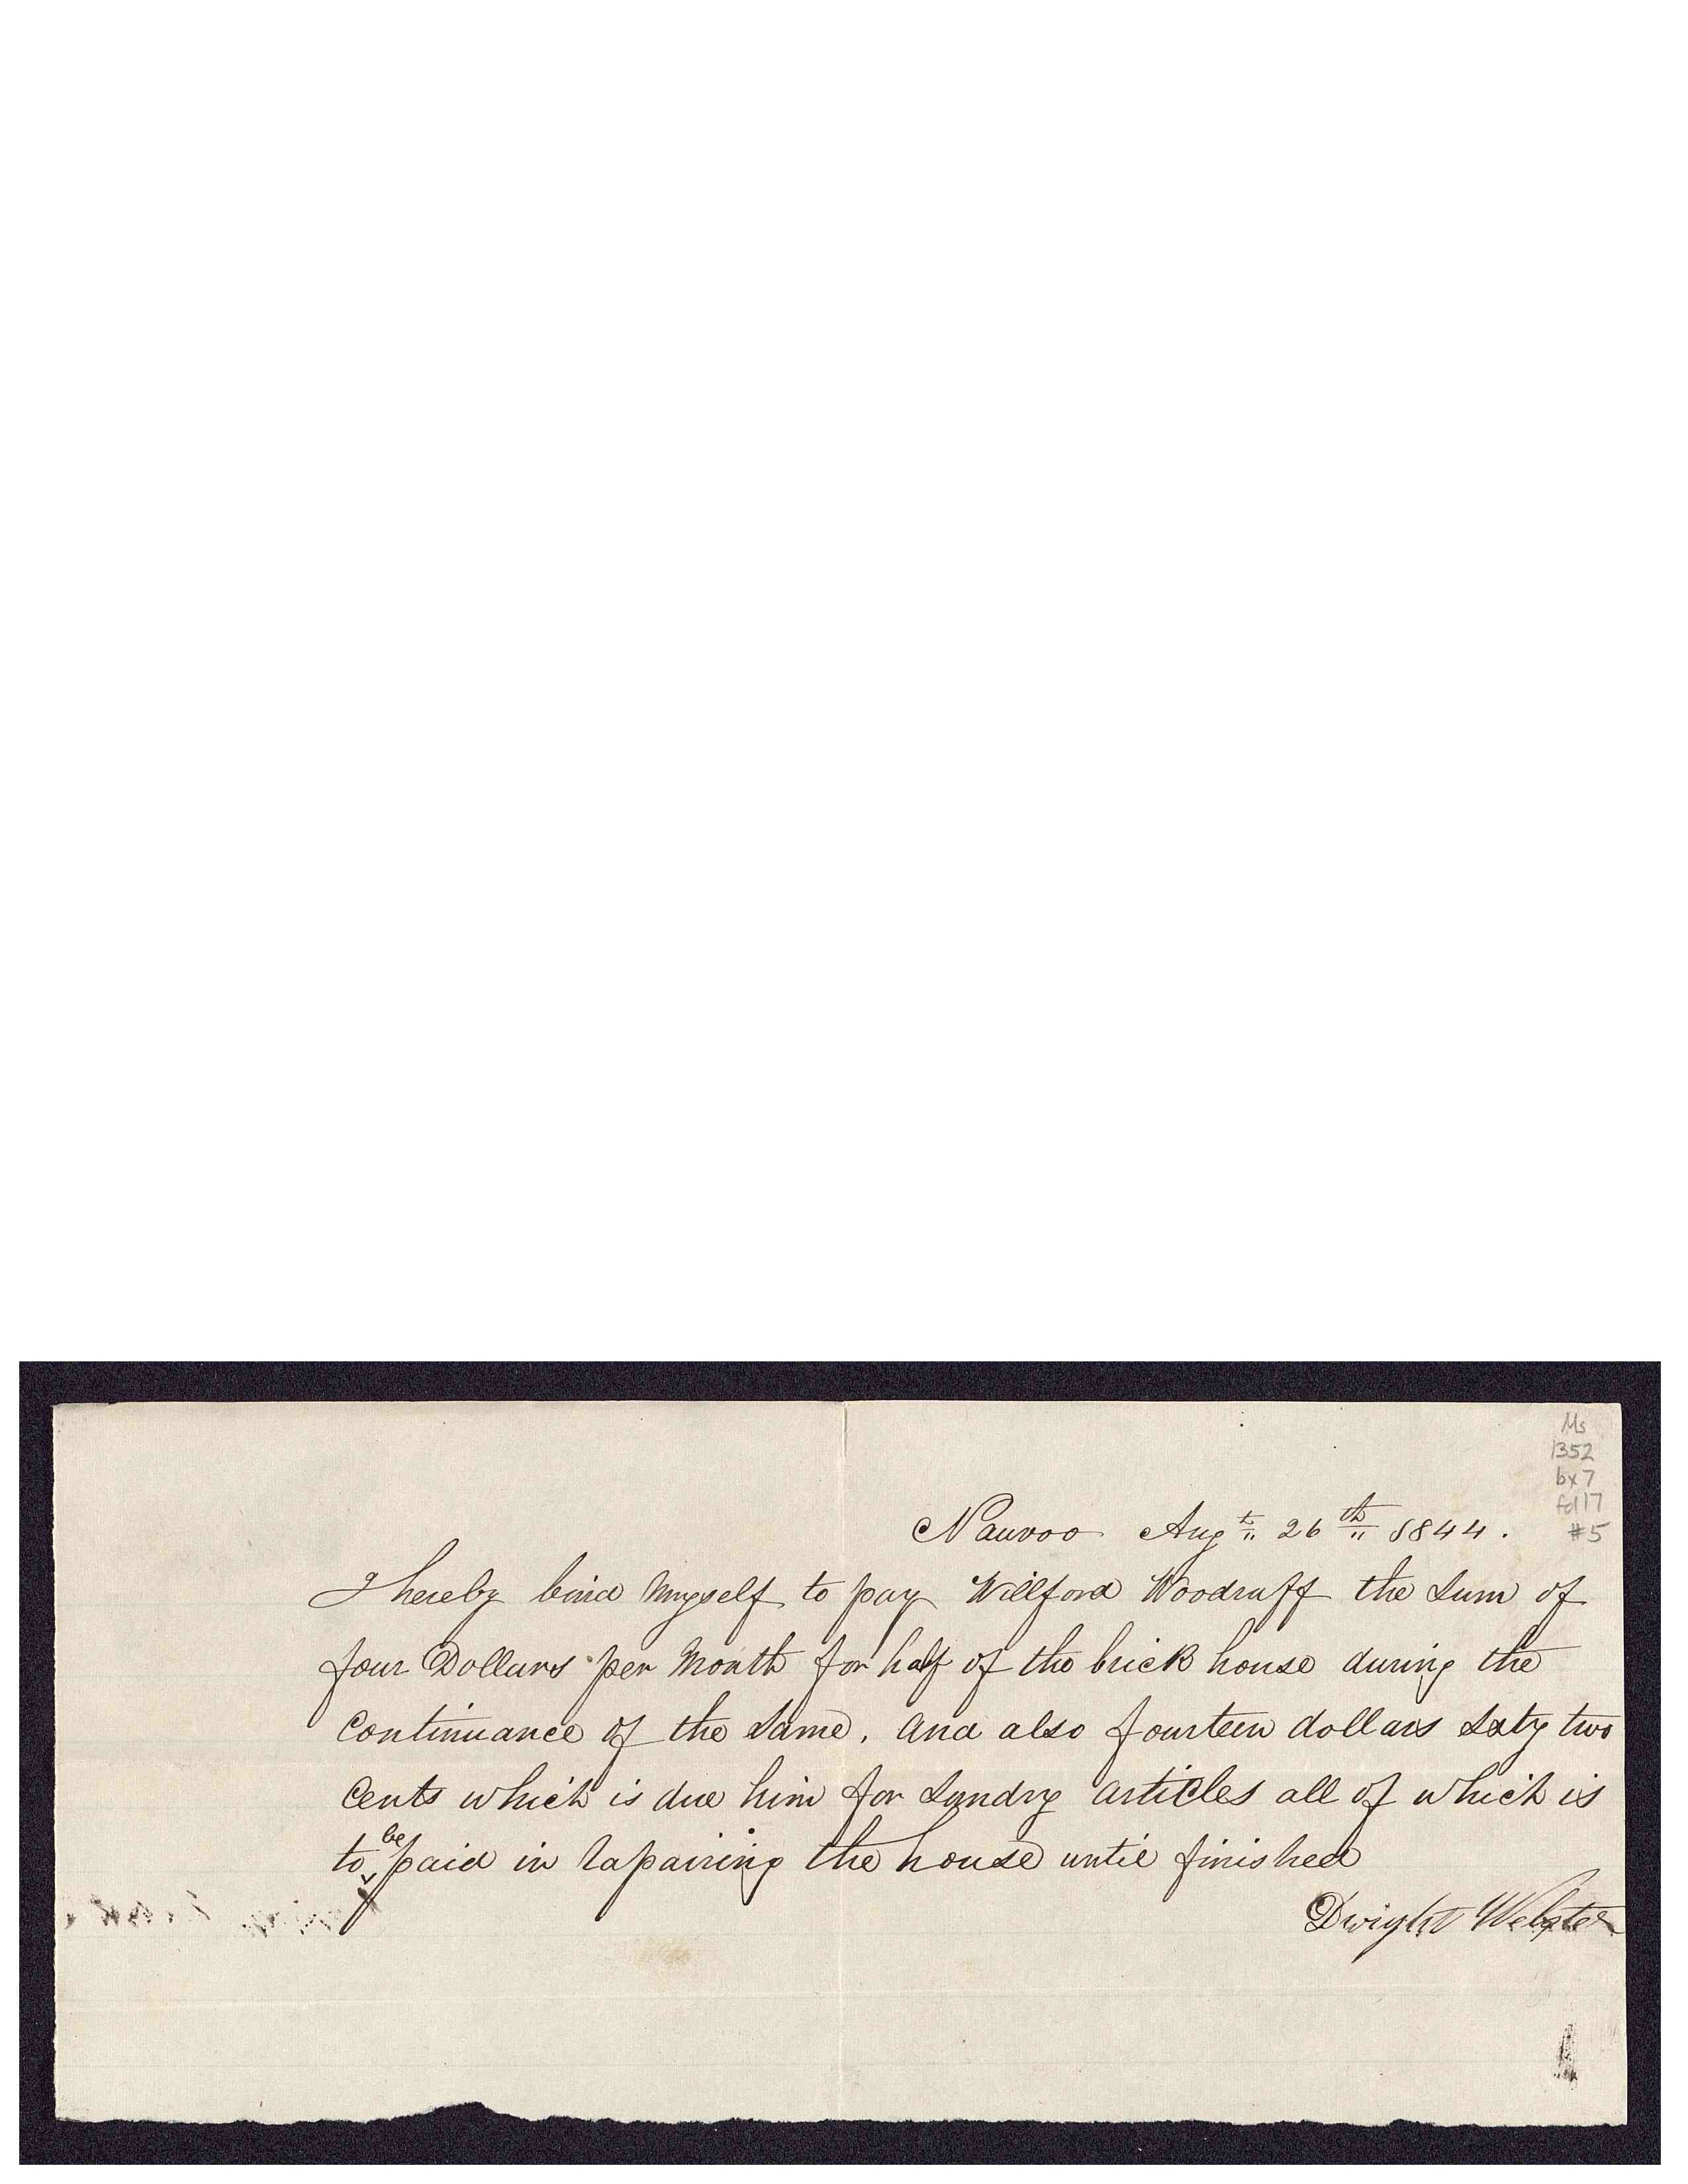 Ms
1352
bx 7
fd 17
#5
Nauvoo Augt 26th 1844.
I hereby bind myself to pay Willford Woodruff the Sum of
four Dollars per Month for half of the brick house during the
Continuance of the Same, and also fourteen dollars Sxty two
Cents which is due him for Sundry articles all of which is
to be paid in rapairing the house until finished
Dwight Webster